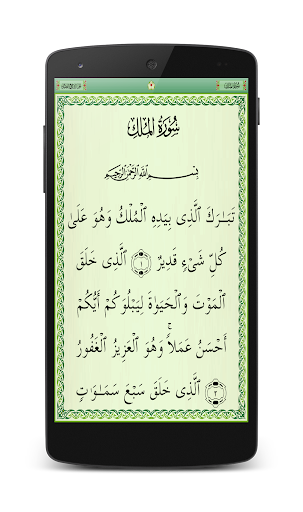 سُورَةُ المُلْكِ
بِسْمِ اللَّهِ الرَّحْمَٰنِ الرَّحِيمِ
تَبَـٰرَكَ ٱلَّذِى بِيَدِهِ ٱلْمُلْكُ وَهُوَ عَلَىٰ
كُلِّ شَىْءٍ قَدِيرٌ ﴿١﴾ ٱلَّذِى خَلَقَ
ٱلْمَوْتَ وَٱلْحَيَوٰةَ لِيَبْلُوَكُمْ أَيُّكُمْ
أَحْسَنُ عَمَلًاۚ وَهُوَ ٱلْعَزِيزُ ٱلْغَفُورُ
﴿٢﴾ ٱلَّذِى خَلَقَ سَبْعَ سَمَـٰوَٰتٍ